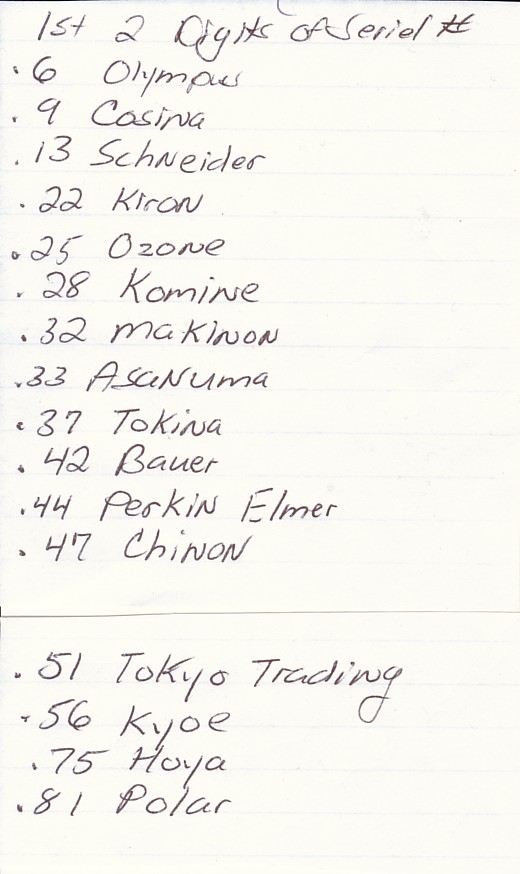 1st 2 Digits of Seriel #
. 6 Olympus
. 9 Cosina
. 13 Schneider
. 22 Kiron
. 25 Ozone
. 28 Komine
. 32 Makinon
. 33 Asanuma
. 37 Tokina
. 42 Bauer
. 44 Perkin Elmer
. 47 Chinon
. 51 Tokyo Trading
. 56 Kyoe
. 75 Hoya
. 81 Polar